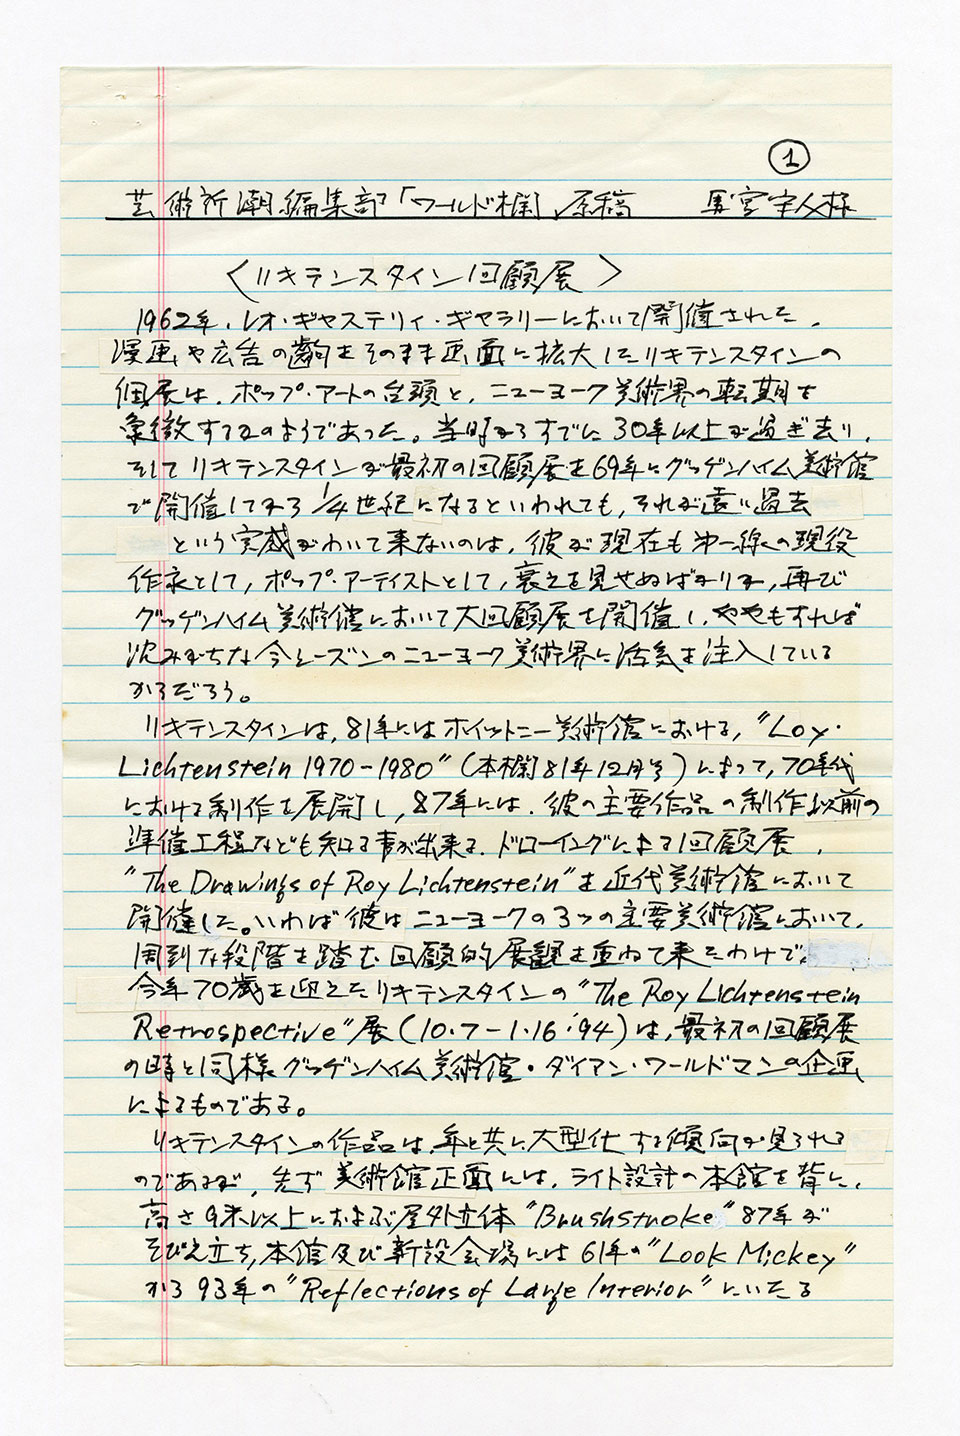 ①
芸術新潮編集部「ワールド欄」原稿 馬宮宇人様
〈リキテンスタイン回顧展〉
1962年、レオ・ギャステリィ・ギャラリーにおいて開催された、
漫画や広告の齣をそのまま画面に拡大したリキテンスタインの
個展は、ポップ・アートの台頭と、ニューヨーク美術界の転期を
象徴するものようであった。当時からすでに30年以上が過ぎ去り、
そしてリキテンスタインが最初の回顧展を69年にグッゲンハイム美術館
で開催してから1/4世紀になるといわれても、それが遠い過去
という実感がわいて来ないのは、彼が現在も第一線の現役
作家として、ポップ・アーティストとして、衰えを見せぬばかりか、再び
グッゲンハイム美術館において大回顧展を開催し、ややもすれば
沈みがちな今シーズンのニューヨーク美術界に活気を注入している
からだろう。
リキテンスタインは、81年にはホイットニー美術館における、"Loy・
Lichtenstein 1970-1980"(本欄81年12月号)によって、70年代
における制作を展開し、87年には、彼の主要作品の制作以前の
準備工程なども知る事が出来る、ドローイングによる回顧展、
"The Drawings of Roy Lichtenstein"を近代美術館において
開催した。いわば彼はニューヨークの3つの主要美術館において、
周到な段階を踏む回顧的展観を重ねて来たわけで、
今年70歳を迎えたリキテンスタインの"The Roy Lichtenstein
Retrospective"展(10・7-1・16・'94)は、最初の回顧展
の時と同様グッゲンハイム美術館・ダイアン・ワールドマンの企画
によるものである。
リキテンスタインの作品は、年と共に大型化する傾向が見られる
のであるが、先ず美術館正面には、ライト設計の本館を背に、
高さ9米以上におよぶ屋外立体"Brushstroke"87年が
そびえ立ち、本館及び新設会場には61年の"Look Mickey"
から93年の"Reflections of Large Interior"にいたる